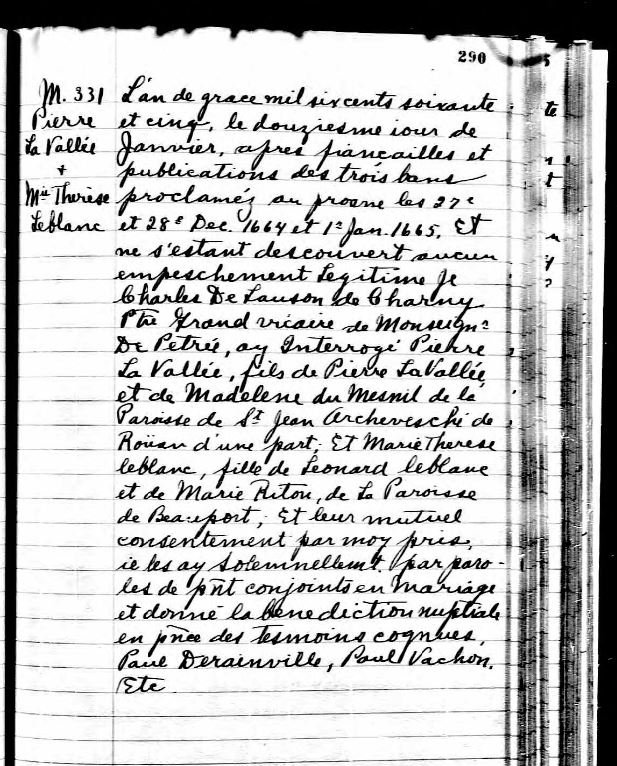 290
M. 331
Pierre
La Vallée
+
Mie Therese
Leblanc
L'an de grace mil six cents soixante
et cinq, le douziesme iour de
Janvier, apres fiançailles et
publications des trois bans
proclaméz au prosne les 27e
et 28e Dec. 1664 et 1r Jan. 1665, Et
ne s'estant descouvert aucun
empeschement Legitime Je
Charles De Lauson de Charny
Ptre Grand vicaire de Monseignr
De Petrée, ay Interrogé Pierre
La Vallée, fils de Pierre La Vallée,
et de Madelene du Mesnil de la
Paroisse de St Jean Archevesché de
Roüan d'une part; Et Marie Therese
leblanc, fille de Leonard leblanc
et de Marie Riton, de La Paroisse
de Beauport; Et leur mutuel
consentement par moy pris,
ie les ay solemnellemt. par paro-
les de pñt conjoints en Mariage
et donné la benediction nuptiale
en pñce des tesmoins cognues,
Paul Derainville, Paul Vachon.
Etc